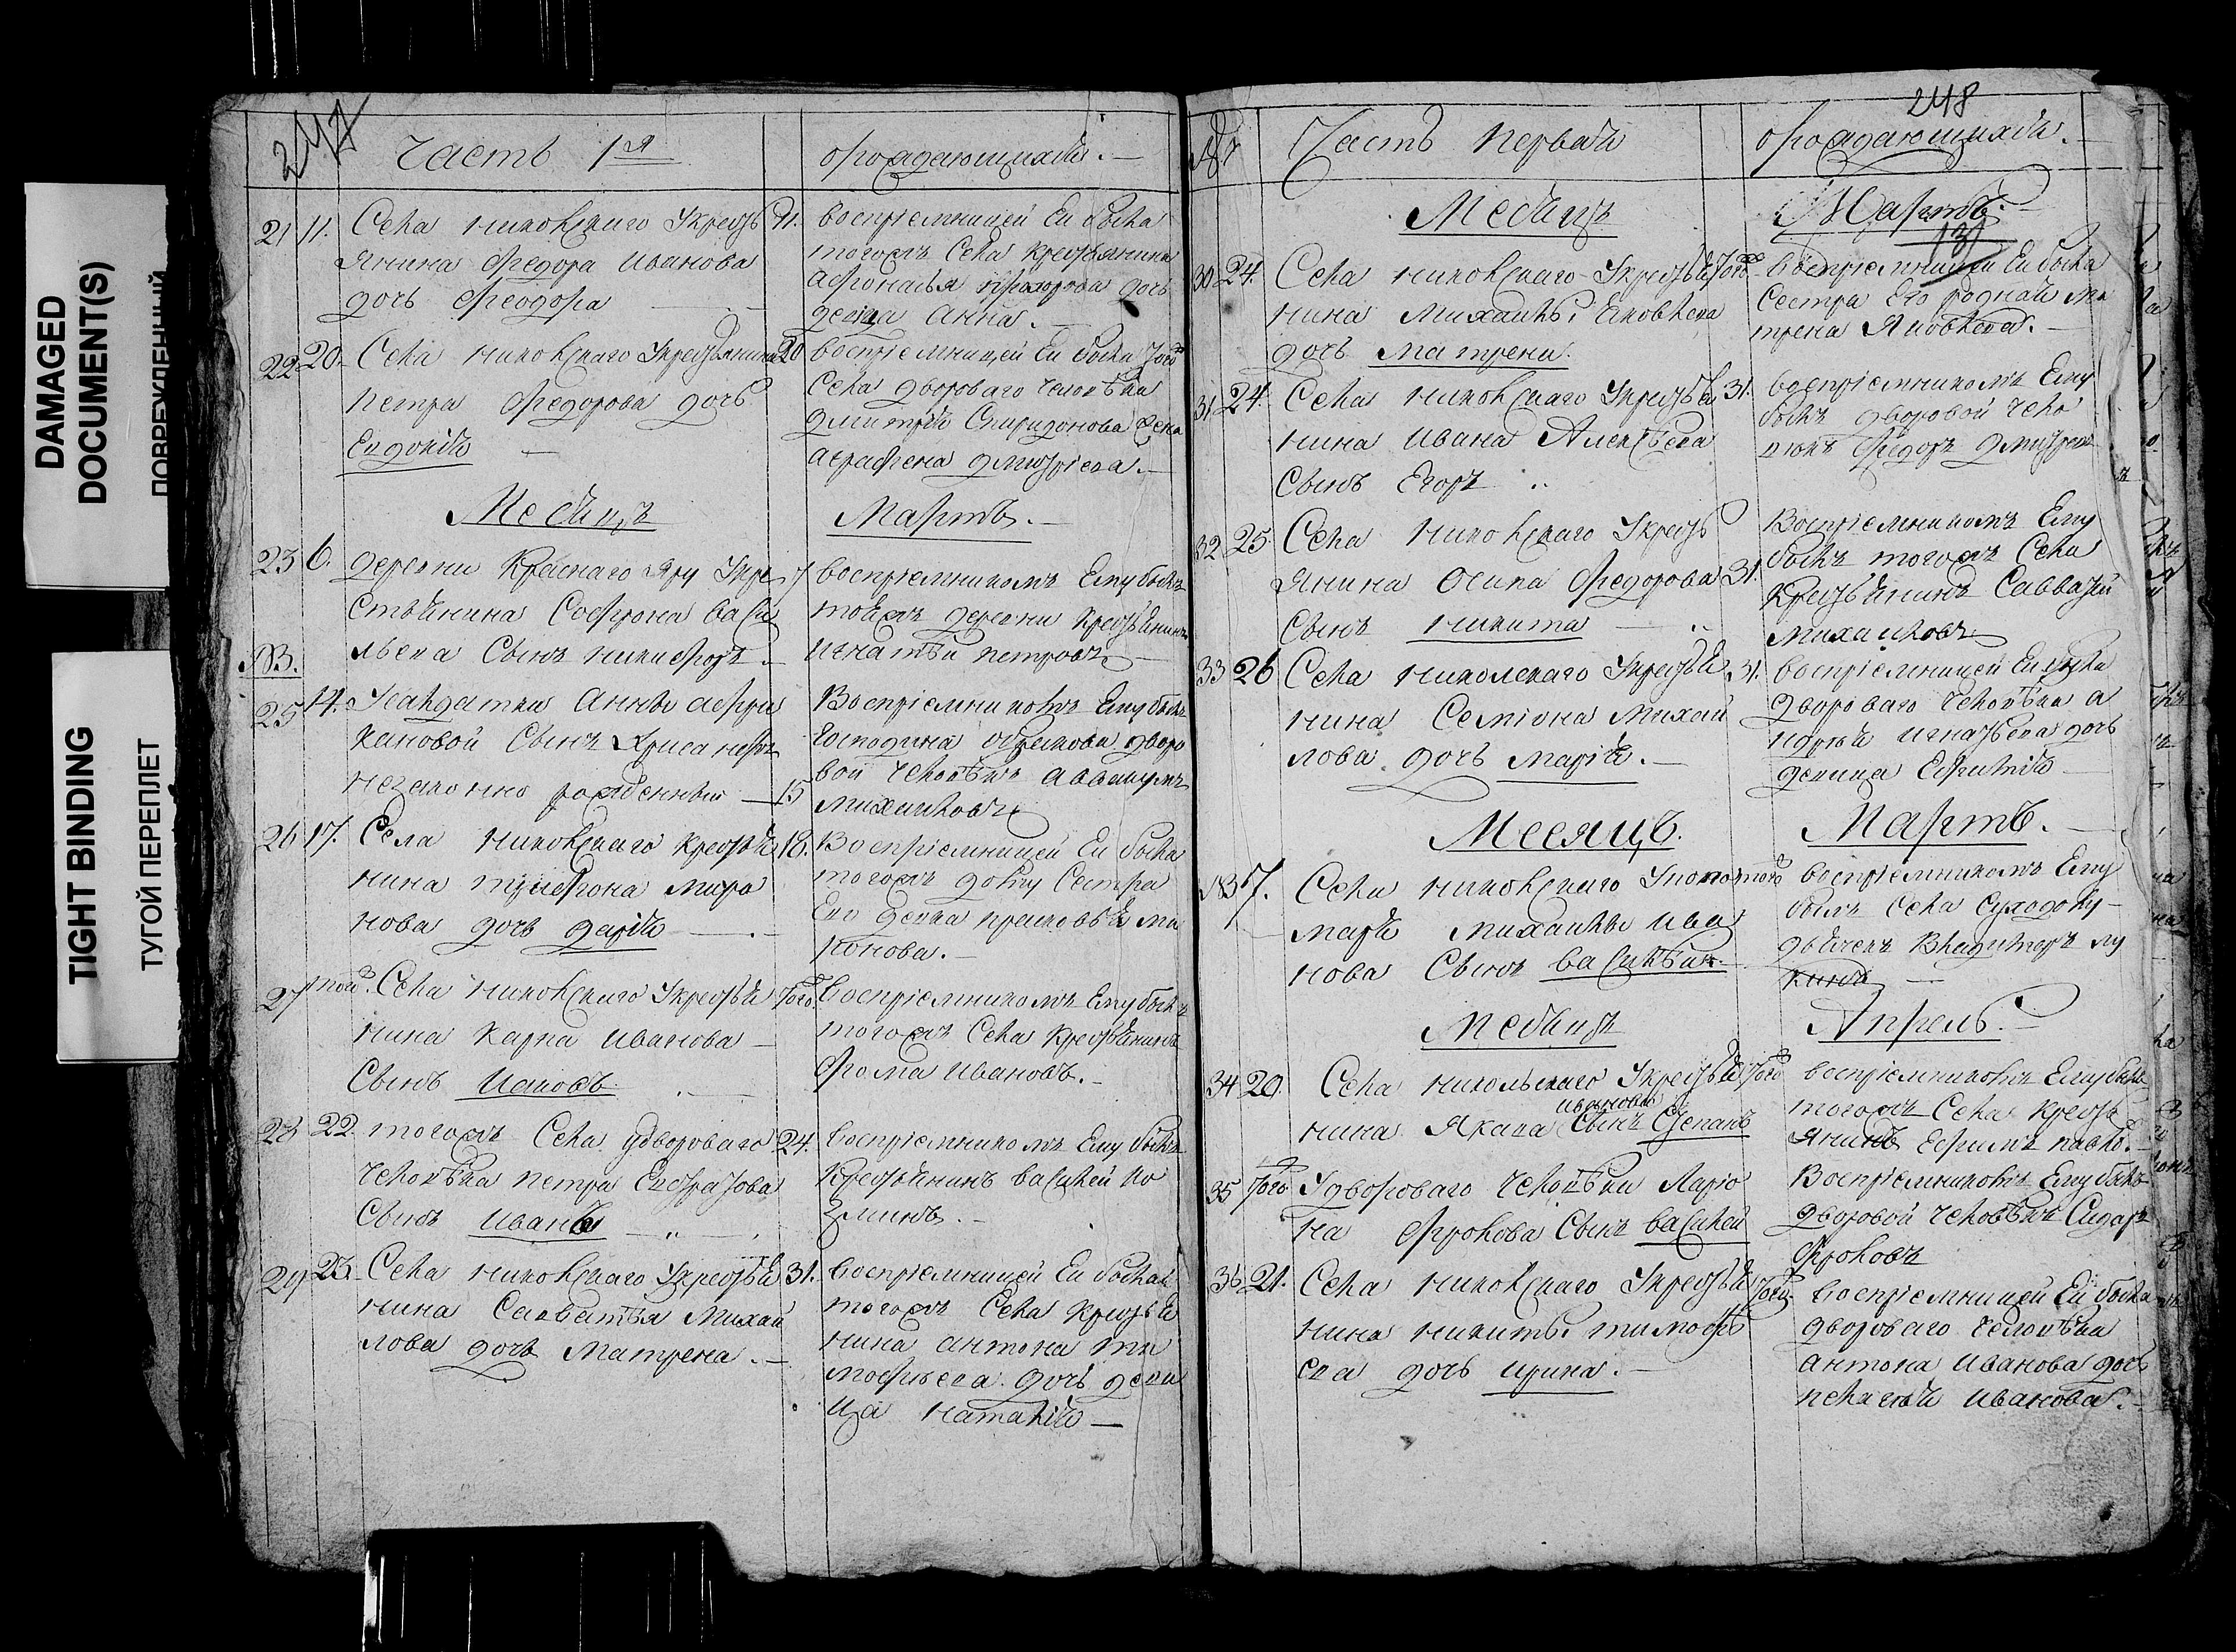 DAMAGED
DOCUMENT(S)
TIGHT BINDING
ТУГОЙ ПЕРЕПЛЕТ
247
Часть 1я
орождающихся.
21 11. Села никольскаго укресть 11.
янина Федора Иванова
дочь Феодора
воспріемницей Ей была
тогожъ Села крестьянина
Афонасья прохорова дочь
девица Анна.
22 20. Села никольскаго укрестьянина 20
петра Федорова дочь
Евдокія
воспріемницей Ей была того
Села двороваго человека
дмитрія Спиридонова жена
аграфена дмитріева.
Месяцъ Мартъ.
23 6. деревни Краснаго яру укре 7
стьянина Софрона васи
льева Сынъ никифоръ.
воспріемникомъ Ему былъ
тояжъ деревни крестьянинъ
игнатей петровъ
NB.
25 14. Усалдатки Анны афри
кановой Сынъ Хрисанфъ
незаконно рожденный 15
Воспріемникомъ Ему былъ
господина дворо
вой человѣкъ аввакумъ
михаиловъ
26 17. Села никольскаго крестья 18.
нина триѳона миро
нова дочь дарія
Воспріемницей Ей была
тогожъ дому Сестра
Его девка прасковья ма
конова.
27 той. Села никольскаго укрестья того.
нина карпа иванова
Сынъ иаковъ
воспріемникомъ Ему былъ
тогожъ Села крестьянинъ
Фома ивановъ.
28 22. тогожъ Села удвороваго 24.
человѣка петра Евстратова
Сынъ иванъ
воспріемникомъ Ему былъ
крестьянинъ василей ко
зминъ.
29 23. Села никольскаго укрестья 31.
нина Савватья михаи
лова дочь Матрена.
воспріемницей Ей была
тогожъ Села крестья
нина антона ти
мофеева дочь деви
ца наталія
248
№ Часть первая
орождающихся.
Месяцъ Мартъ.
131
30 24. Села никольскаго укрестья того
нина михаилы яковлева
дочь матрена.
Воспріемницей Ей была
Сестра Его родная ма
трена Яковлева.
31 24. Села никольскаго укрестья 31.
нина ивана Алексѣева
Сынъ Егоръ
воспріемникомъ Ему
былъ дворовой чело
векъ Федоръ
32 25. Села никольскаго укресть
янина Осипа Федорова 31.
Сынъ никита
Воспріемникомъ Ему
былъ тогожъ Села
крестьянинъ Савватей
михаиловъ
33 26 Села николскаго укрестья 31.
нина Семіона михаи
лова дочь марія.
воспріемницей Ей была
двороваго человѣка а
ндрея игнатьева дочь
девица
Месяцъ. Мартъ.
7. Села никольскаго упоно того
маря михаилы ива
нова Сынъ василій
воспріемникомъ Ему
былъ Села Суходолу
дьячекъ Владимеръ лу
кинъ
Месяцъ Апрель.
34 20. Села никольскаго укрестья того
ивановъ
нина Якава Сынъ Степанъ
воспріемникомъ Ему былъ
тогожъ Села кресть
янинъ Ефимъ павло.
35 того Удвороваго человѣка Ларіо
на Фролова Сынъ василей
Воспріемникомъ Ему былъ
дворовой человѣкъ Сидаръ
Фроловъ
36 21. Села никольскаго укрестья того
нина никиты тимофе
ева дочь ирина.
воспріемницей Ей была
двороваго человѣка
антона иванова дочь
пелагея иванова.